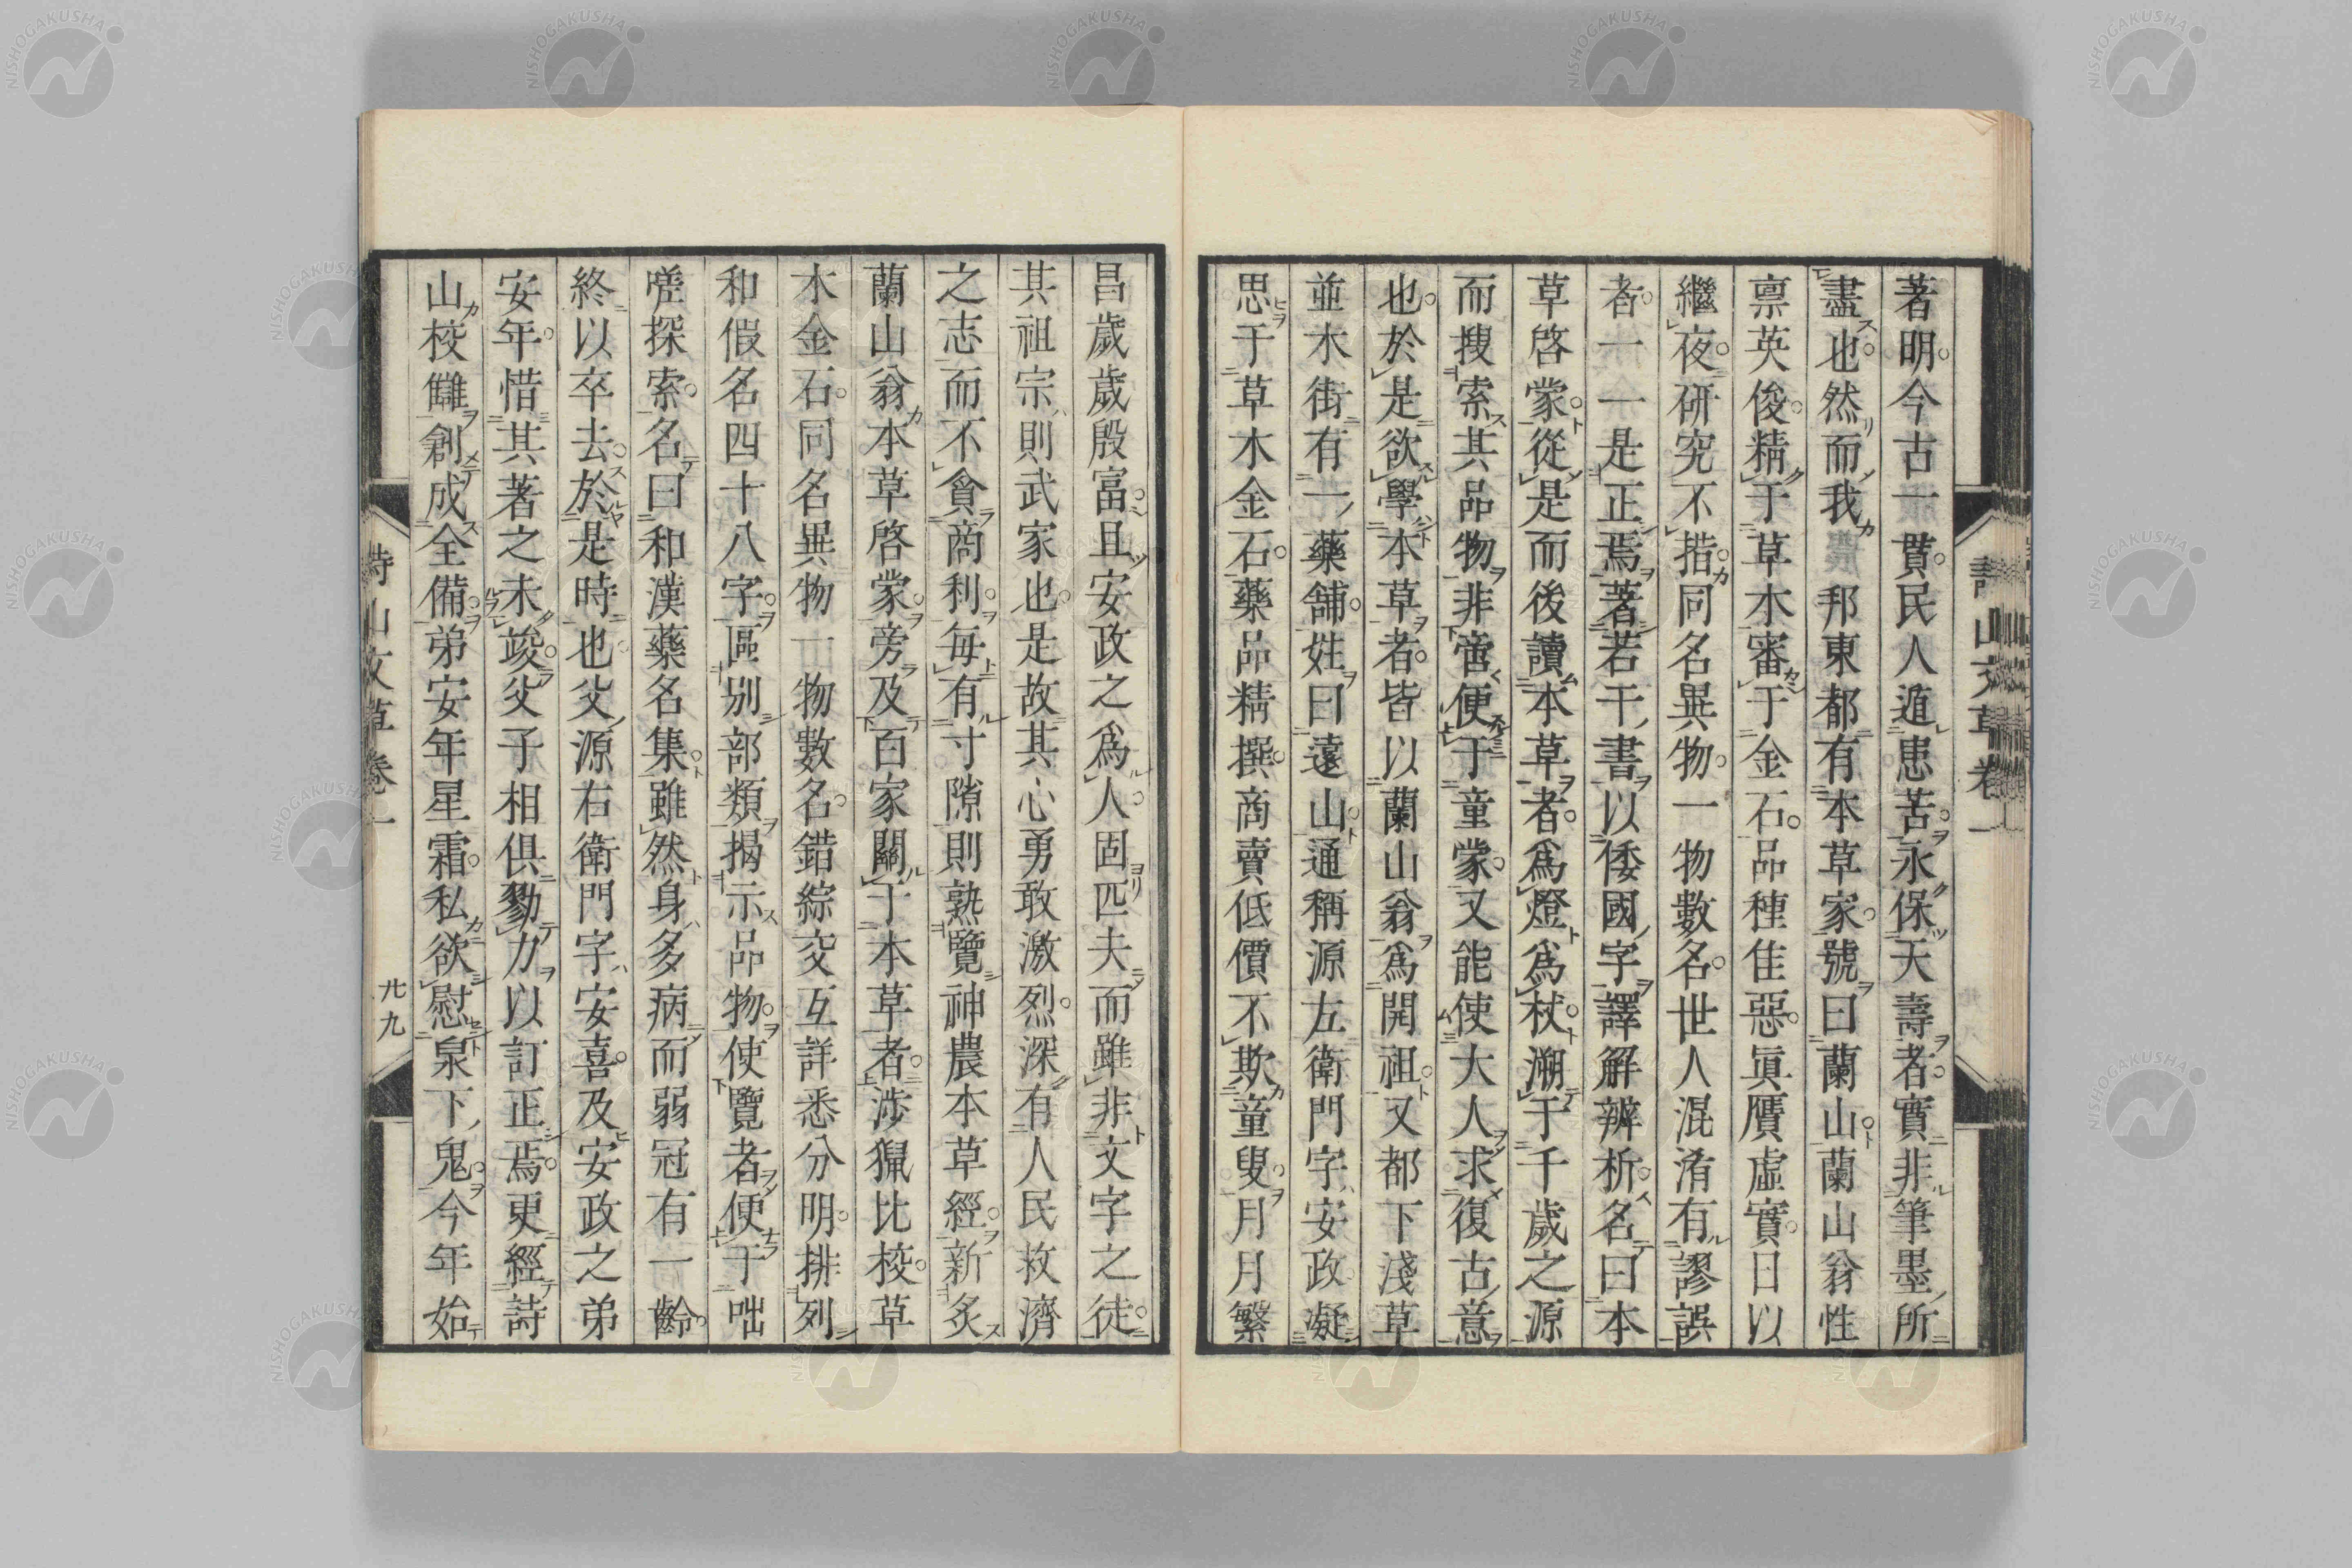 著明今古一貫民人遁患苦永保天壽者實非筆墨所
盡也然而我邦東都有本草家號曰蘭山蘭山翁性
禀英俊精于草木審于金石品種佳惡眞贋虛實日以
繼夜硏究不措同名異物一物數名世人混淆有謬誤
者一一是正焉著若干書以倭國字譯解辨析名曰本
草啓蒙從是而後讀本草者爲燈爲杖溯于千歲之源
而搜索其品物非啻便于童蒙又能使大人求復古意
也於是欲學本草者皆以蘭山翁爲開祖又都下淺草
並木街有一藥舖姓曰遠山通稱源左衛門字安政凝
思于草木金石藥品精撰商賣低價不欺童叟月月繁
詩山文草卷一
昌歲歲殷富且安政之爲人固匹夫而雖非文字之徒
其祖宗則武家也是故其心勇敢激烈深有人民救濟
之志而不貪商利每有寸隙則熟覽神農本草經新炙
蘭山翁本草啓蒙旁及百家關于本草者涉獵比校草
木金石同名異物一物數名錯綜交互詳悉分明排列
和假名四十八字區別部類揭示品物使覽者便于咄
嗟探索名曰和漢藥名集雖然身多病而弱冠有一齡
終以卒去於是時也父源右衛門字安喜及安政之弟
安年惜其著之未竣父子相俱勠力以訂正焉更經詩
山校讎創成全備弟安年星霜私欲慰泉下鬼今年始
詩山文草卷一
卅九
NISHOGAKUSHA